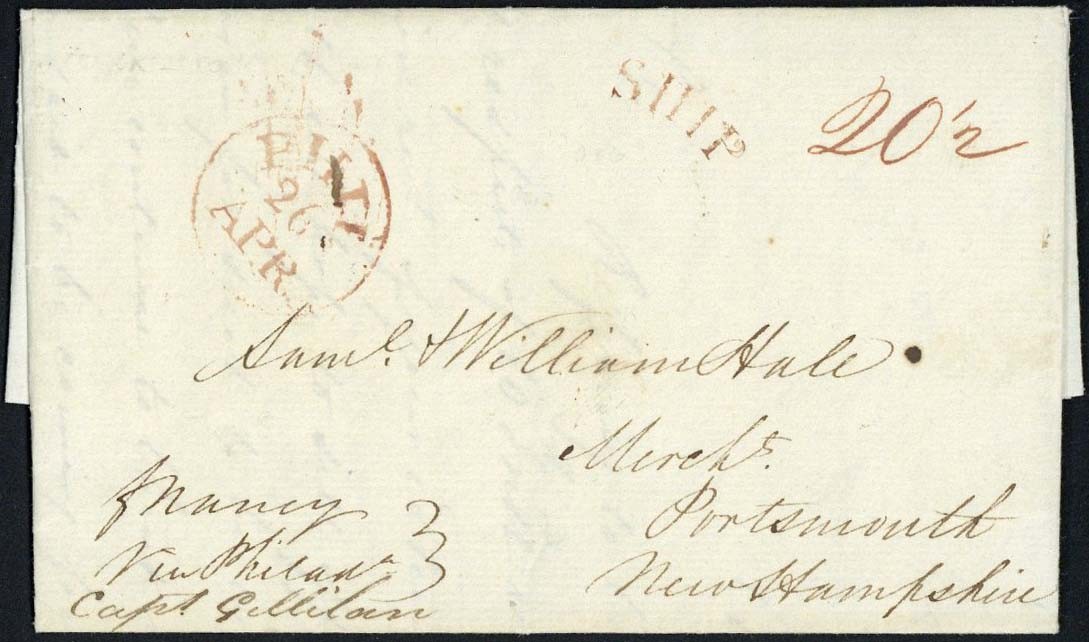 PHIL
26
APR.
SHIP
20 1/2
Saml. & William Hale
Mercht.
Portsmouth
New Hampshire
Nancy
Via Philada
Capt Gillilan